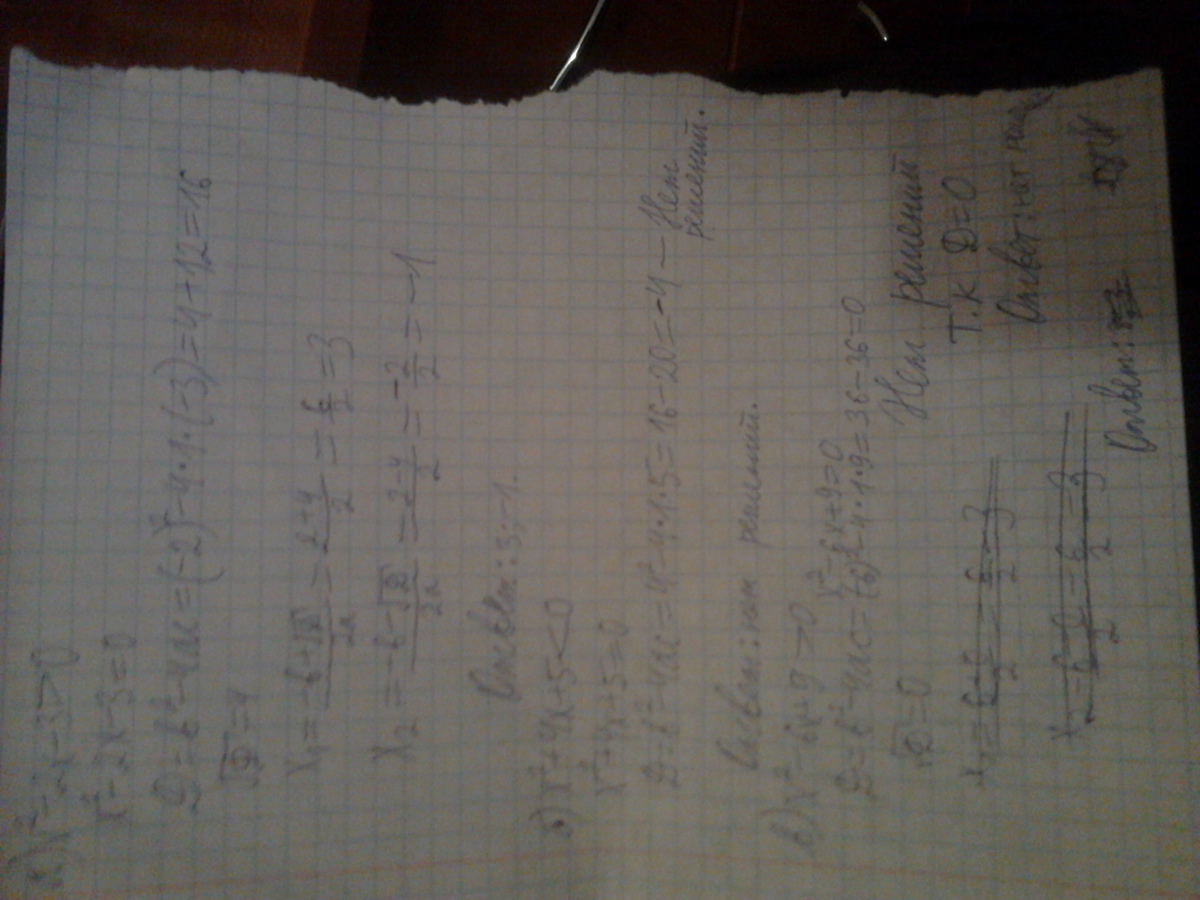 а) x²-2x-3>0
x²-2x-3=0
D=b²-4ac=(-2)²-4·1·(-3)=4+12=16
√D=4
x₁=-b+√D/2a=2+4/2=6/2=3
x₂=-b-√D/2a=2-4/2=-2/2=-1
Ответ: 3; -1.
б) x²+4x+5<0
x²+4x+5=0
D=b²-4ac=4²-4·1·5=16-20=-4 — Нет решений.
Ответ: нет решений.
в) x²-6x+9>0
x²-6x+9=0
D=b²-4ac=(6)²-4·1·9=36-36=0
√D=0
Нет решений
т.к D=0
Ответ: нет
Ответ: